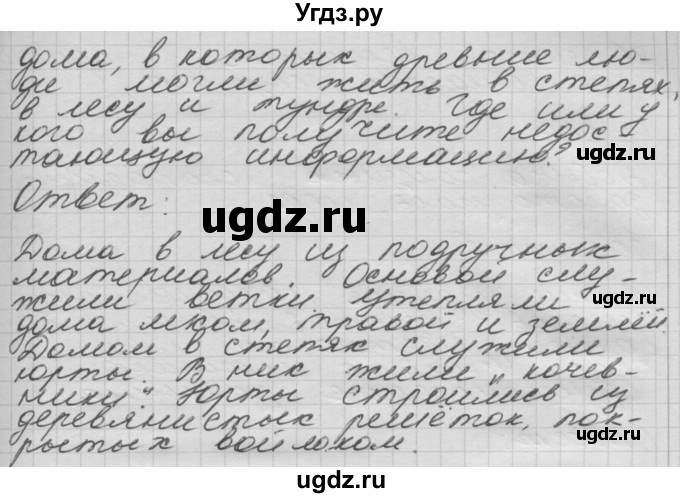 Угдз.ру
дома, в которых древние лю-
ди могли жить в степях,
в лесу и тундре. Где или у
кого вы получите недос-
тающую информацию?
ugdz.ru
Ответ:
ugdz.ru
Дома в лесу из подручных
материалов. Основой слу-
ugdz.ru
жили ветки утепляли
дома мхом, травой и землёй.
Домом в степях служили
юрты. В них жили „кочев-
ники". Юрты строились из
деревянистых решёток, пок-
рытых войлоком.
ugdz.ru
ugdz.ru